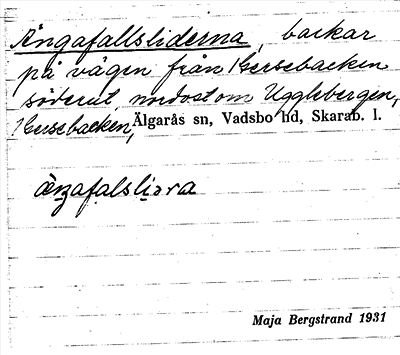 Ängafallsliderna, backar
på vägen från Kersebacken
söderut, nordost om Ugglebergen,
Kersebacken, Älgarås sn, Vadsbo hd, Skarab. l.
Maja Bergstrand 1931